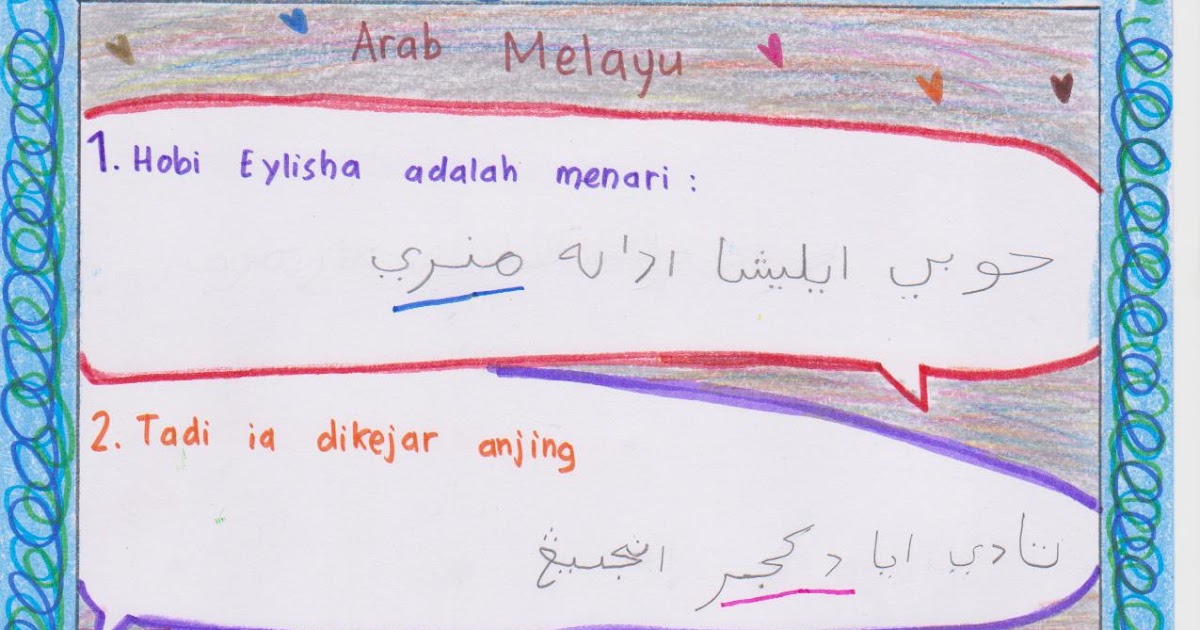 Arab Melayu
1. Hobi Eylisha adalah menari :
حوبي ايليشا ادا له منري
2. Tadi ia dikejar anjing
تادي ايا دكجر انجيڠ